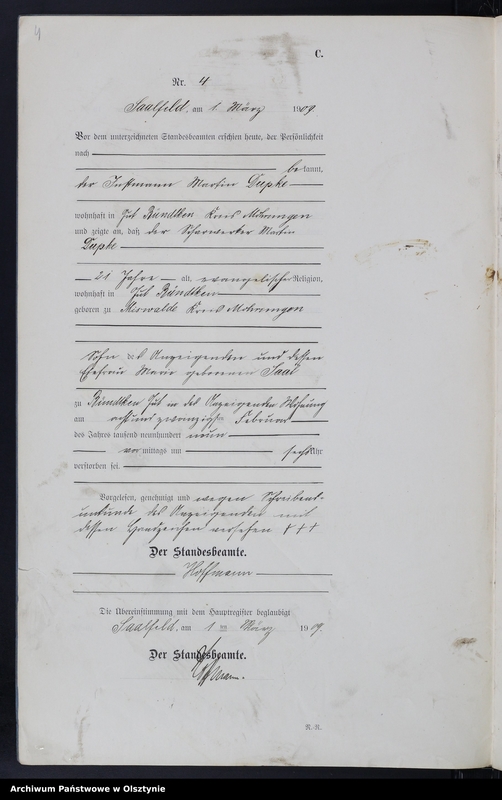 4
C.
Nr. 4
Saalfeld, am 1 März 1909.
Vor dem unterzeichneten Standesbeamten erschien heute, der Persönlichkeit
nach
bekannt,
der Instmann Martin Dupke
wohnhaft in Gut Kreis Mohrungen
und zeigte an, daß der Scharwerker Martin
Dupke
21 Jahre alt, evangelischer Religion,
wohnhaft in Gut
geboren zu Miswalde Kreis Mohrungen
Sohn des Anzeigenden und dessen
Ehefrau Marie geborenen Saal
zu Gut in des Anzeigenden Wohnung
am achtundzwanzigsten Februar
des Jahres tausend neunhundert neun
vormittags um sechs Uhr
verstorben sei.
Vorgelesen, genehmigt und wegen Schreibens-
unkunde des Anzeigenden mit
dessen Handzeichen versehen +++
Der Standesbeamte.
Hoffmann
Die Übereinstimmung mit dem Hauptregister beglaubigt
Saalfeld, am 1 ten März 1909.
Der Standesbeamte.
Hoffmann.
Archiwum Państwowe w Olsztynie